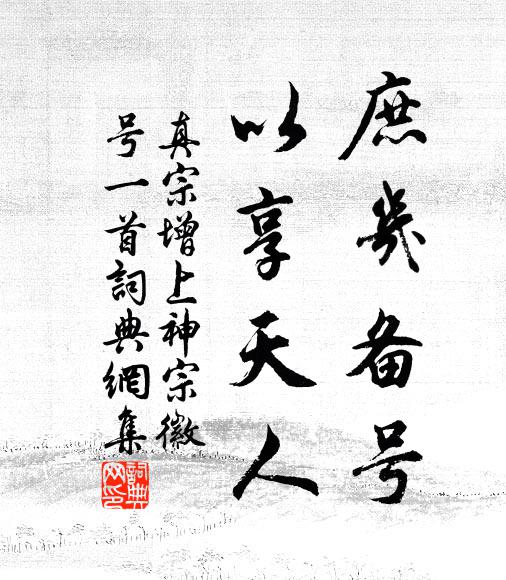 庶几备号
以享天人
真宗增上神宗徽
号一首詞典網集
詞典网印